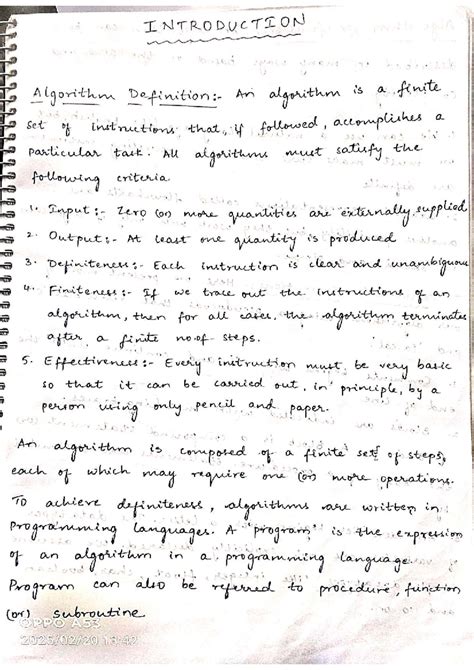 INTRODUCTION
Algorithm Definition:- An algorithm is a finite
set of instructions that, if followed, accomplishes a
particular task. All algorithms must satisfy the
following criteria
1. Input:- Zero (or) more quantities are externally supplied
2. Output:- At least one quantity is produced
3. Definiteness:- Each instruction is clear and unambiguous
4. Finiteness:- If we trace out the instructions of an
algorithm, then for all cases, the algorithm terminates
after a finite no.of steps.
5. Effectiveness:- Every instruction must be very basic
so that it can be carried out, in principle, by a
person using only pencil and paper.
An algorithm is composed of a finite set of steps,
each of which may require one (or) more operations.
To achieve definiteness, algorithms are written in
Programming languages. A "program" is the expression
of an algorithm in a programming language
Program can also be referred to procedure, function
(or) subroutine
OPPO A53
2025/02/20 13:42